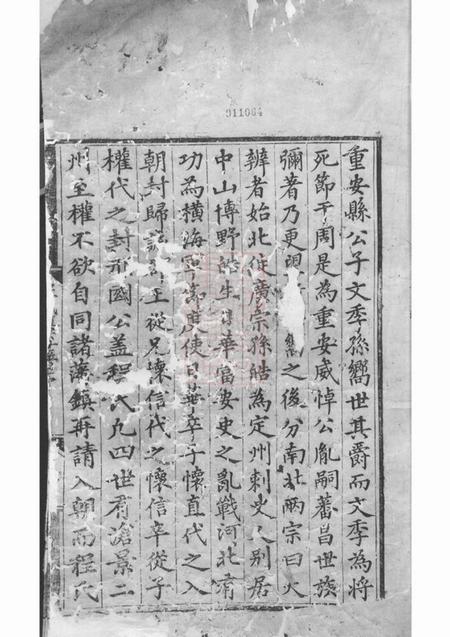 911064
重安縣公子文季孫嚮世其爵而文季為將
死節于周是為重安威悼公胤嗣蕃昌世族
彌著乃更 雋之後分南北兩宗曰大
辨者始北從廣宗孫皓為定州刺史 別居
中山博野皓生日華當安史之亂戰河北有
功為橫海軍節度使日華卒子懷直代之入
朝封歸 王從兄懷信代之懷信卒從子
權代之封邢國公蓋程氏凡四世有滄景二
州至權不欲自同諸藩鎮再請入朝而程氏